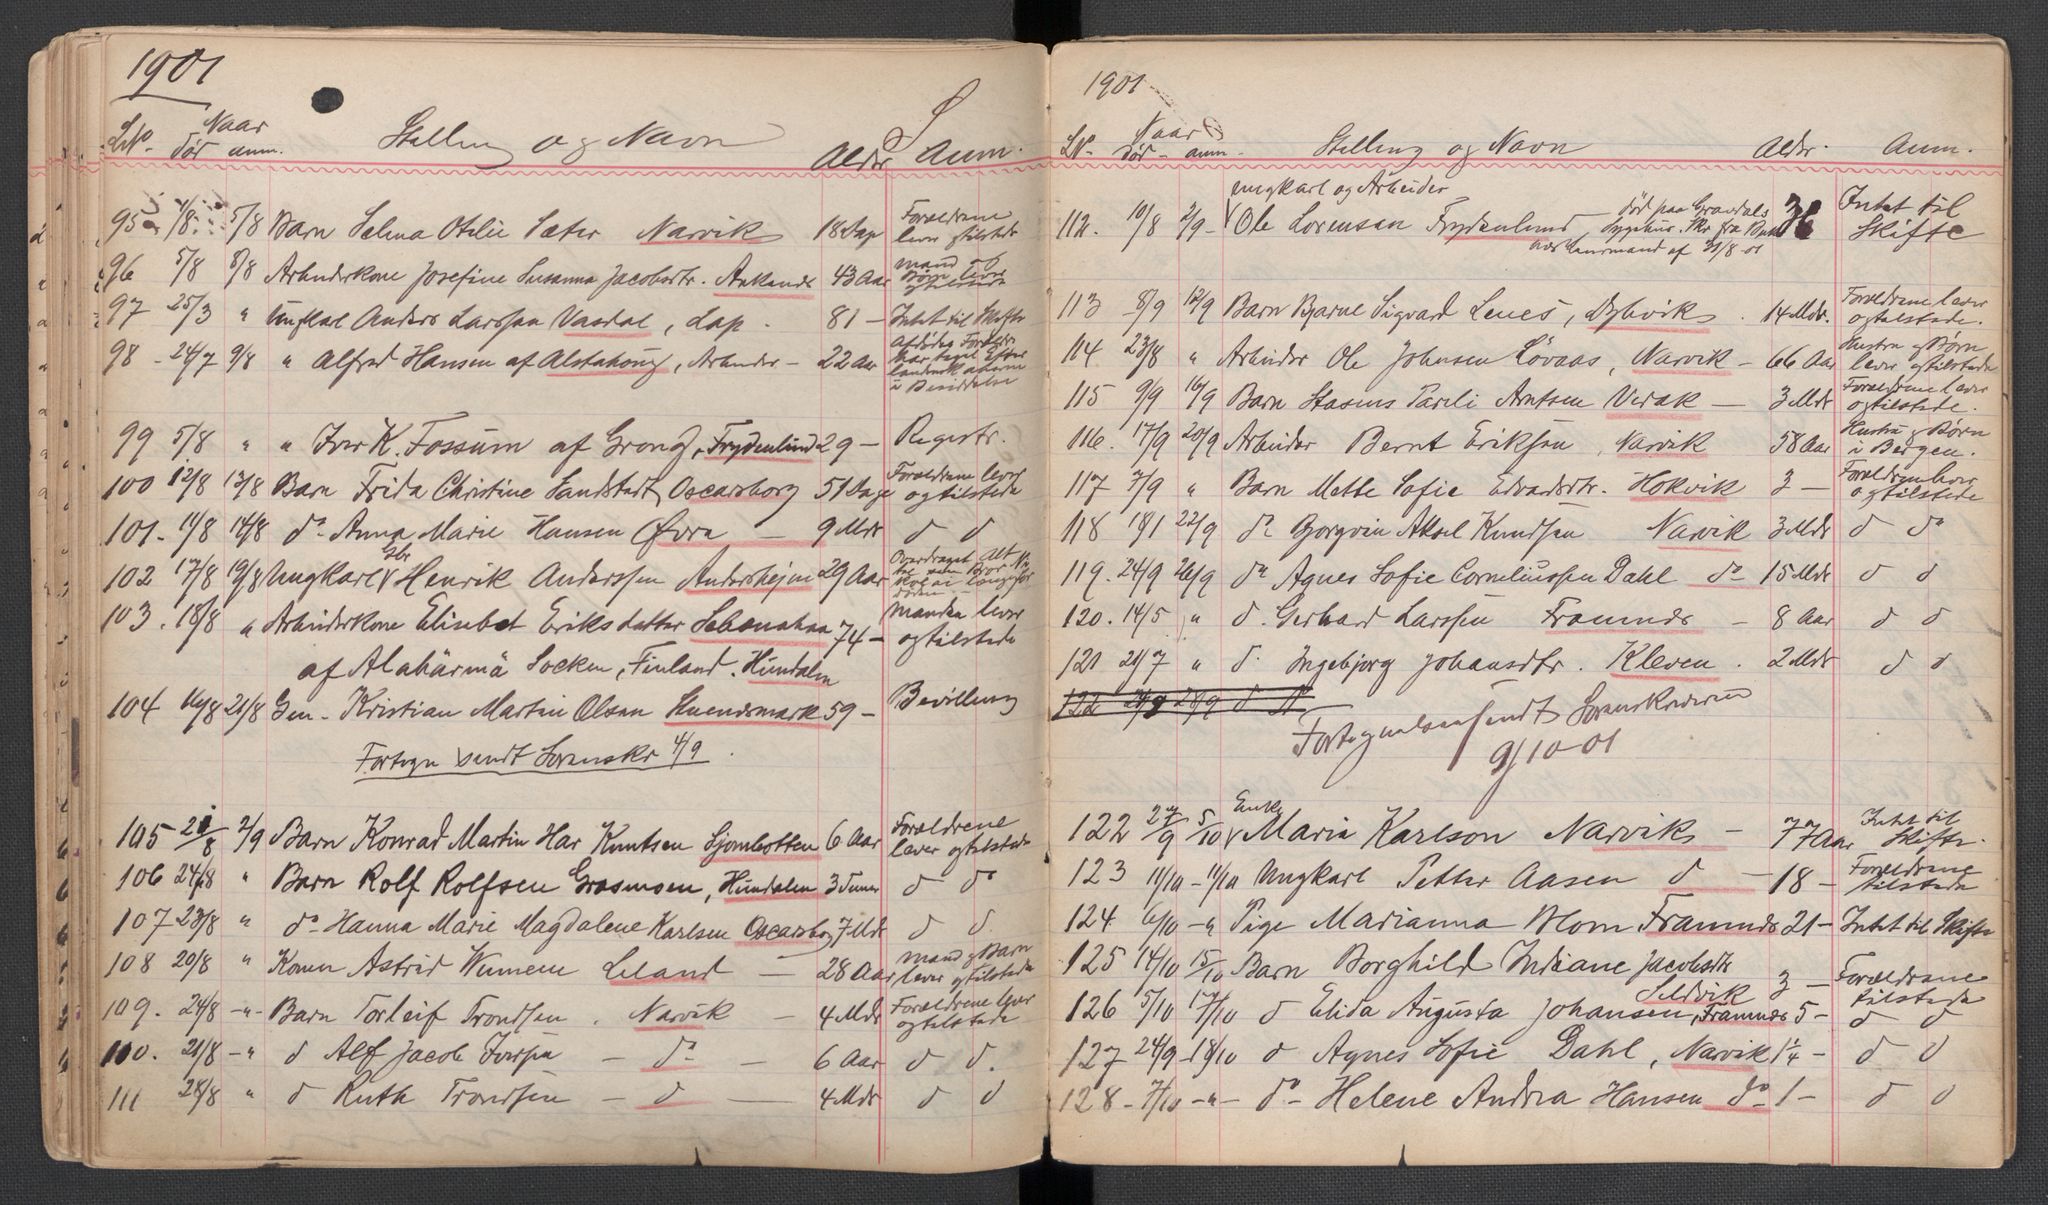 1901
LNo. Naar
død anm. Stilling og Navn Alder Anm.
95 4/8 5/8 Barn Selma Otilie Sæter Narvik 18 Dage Forældrene lever og tilstede
96 5/8 8/8 Arbeiderkone Josefine Susanna Jacobsdtr. Ankenes 43 Aar Mand og Børn lever og tilstede
97 25/3 " Ungkarl Anders Larssen Vasdal, Lap. 81 – Intet til Skifte
98 – 24/7 9/8 " Alfred Hansen af Alstahoug, Arbeider – 22 Aar Afdødes Forældre har taget Efterladenskaberne i Besiddelse
99 5/8 " " Iver K. Fossum af Grong, Frydenlund 29 – Registr.
100 12/8 13/8 Barn Frida Christine Sandstedt, Oscarsborg 51 Dage Forældrene lever og tilstede
101. 11/8 14/8 do. Anna Marie Hansen Øvra – 9 Mdr d d
102 17/8 19/8 Ungkarl Henrik Anderssen Andershejm 29 Aar
103. 18/8 " Arbeiderkone Elisabet Eriksdatter 74 – Manden lever og tilstede
af Alahärmä Socken, Finland. Hundalen
104 16/8 21/8 Gm. Kristian Martin Olsen 59 – Bevilling
Fortegn sendt Sorenskr 4/9.
105 21/8 2/9 Barn Konrad Martin Har Knutsen Sjombotten 6 Aar Forældrene lever og tilstede
106 24/8 " Barn Rolf Rolfsen, Hundalen 3 Timer d do
107 23/8 " do Hanna Marie Magdalene Karlsen Oscarsborg 7 Mdr d d.
108 20/8 " Konen Astrid – 28 Aar Mand og Barn lever og tilstede
109. 24/8 – " – Barn Torleif Trondsen. Narvik – 4 Mdr Forældrene lever og tilstede
110. 21/8 – " d Alf Jacob Iversen – do – 6 Aar d d.
111 28/8 " d Ruth Trondsen – d – 4 Mdr d d
1901
LN. Naar
død – anm. Stilling og Navn Alder. Anm.
ungkarl og Arbeider
112. 10/8 2/9 – Ole Lorensen Frydenlund, død paa Gravdals Sygehus. 36 Intet til Skifte
Lensmand af 31/8 01
113 8/9 12/9 Barn Bjarne Sigvard Lenes, Dybvik. 14 Mdr. Forældrene lever og tilstede.
114 23/8 " Arbeider Ole Johnsen Løvaas, Narvik – 66 Aar Hustru og Børn lever og tilstede
115 9/9 16/9 Barn Arntsen – 3 Mdr Forældrene lever og tilstede.
116. 17/9 20/9 Arbeider Bernt Eriksen, Narvik 58 Aar Hustru og Børn i Bergen.
117 7/9 " Barn Mette Sofie Edvardsdtr. Hokvik 3 – Forældrene lever og tilstede
118 18/ 22/9 do Borgvin Aksel Knudsen Narvik 3 Mdr d do
119. 24/9 26/9 do Agnes Sofie Corneliussen Dahl do 15 Mdr d d
120. 14/5 " d. Gerhard Larssen Framnes – 8 Aar d d
121 21/7 " d. Ingebjørg Johansdtr. Kleven. 2 Mdr d d
122 28/9 d
Fortegnelsen sendt Sorenskriveren
9/10-01
122 27/9 5/10 Enke Maria Karlson Narvik – 77 Aar Intet til Skifte.
123 11/10 – 11/10 Ungkarl Petter Aasen d – 18 – Forældrene tilstede
124 6/10 – " Pige Marianna Blom Framnes 21 – Intet til Skifte
125 14/10 15/10 Barn Borghild Indiane Jacobsdtr
Seldvik 3 – Forældrene tilstede
126 5/10 17/10 d Elida Augusta Johansen, Framnes 5 – d d
127 24/9 – 18/10 d Agnes Sofie Dahl, Narvik 1¼ – d d
128 – 7/10 – " – do – Helene Andrea Hansen do 1 – d d